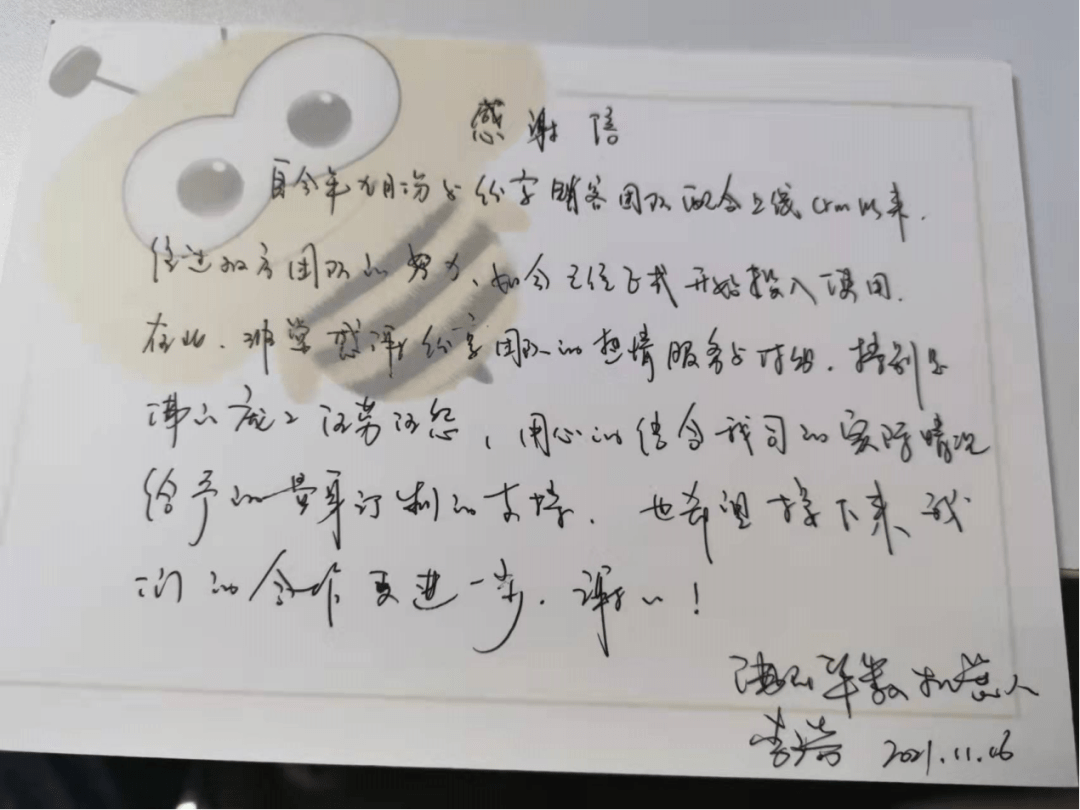 感谢信
自今年九月份与纷享销客团队配合上线crm以来.
经过双方团队的努力、如今已经正式开始投入使用.
在此.非常感谢纷享团队的热情服务与付出.特别是
任劳任怨、用心的结合我司的实际情况
给予的量身订制的支持.也希望接下来、我
们的合作更进一步.谢谢!
佛山华数机器人
2021.11.06